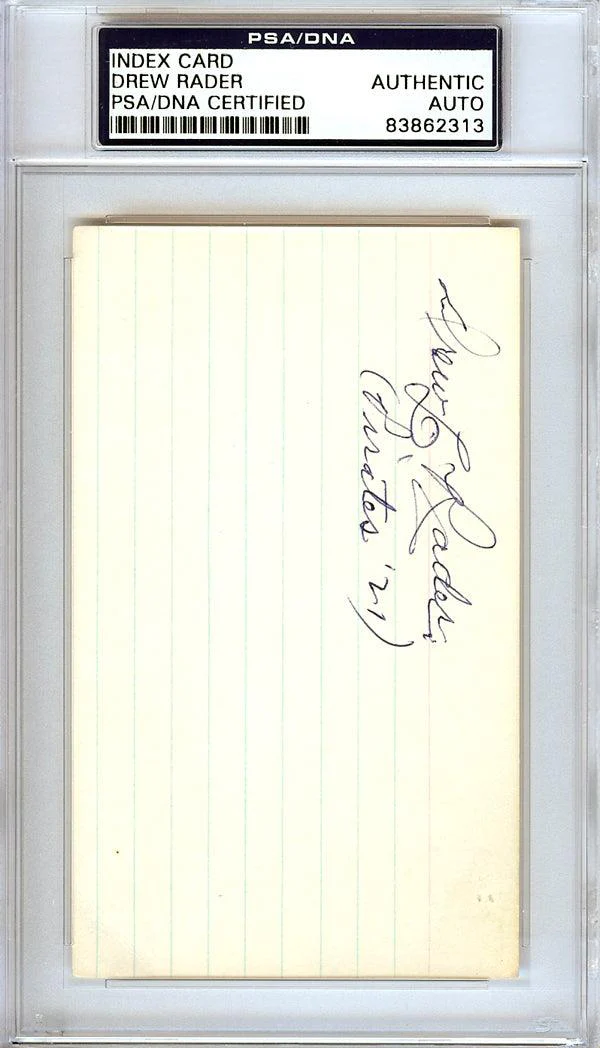 PSA/DNA
INDEX CARD
DREW RADER AUTHENTIC
PSA/DNA CERTIFIED AUTO
83862313
Drew L. Rader
(Pirates '21)